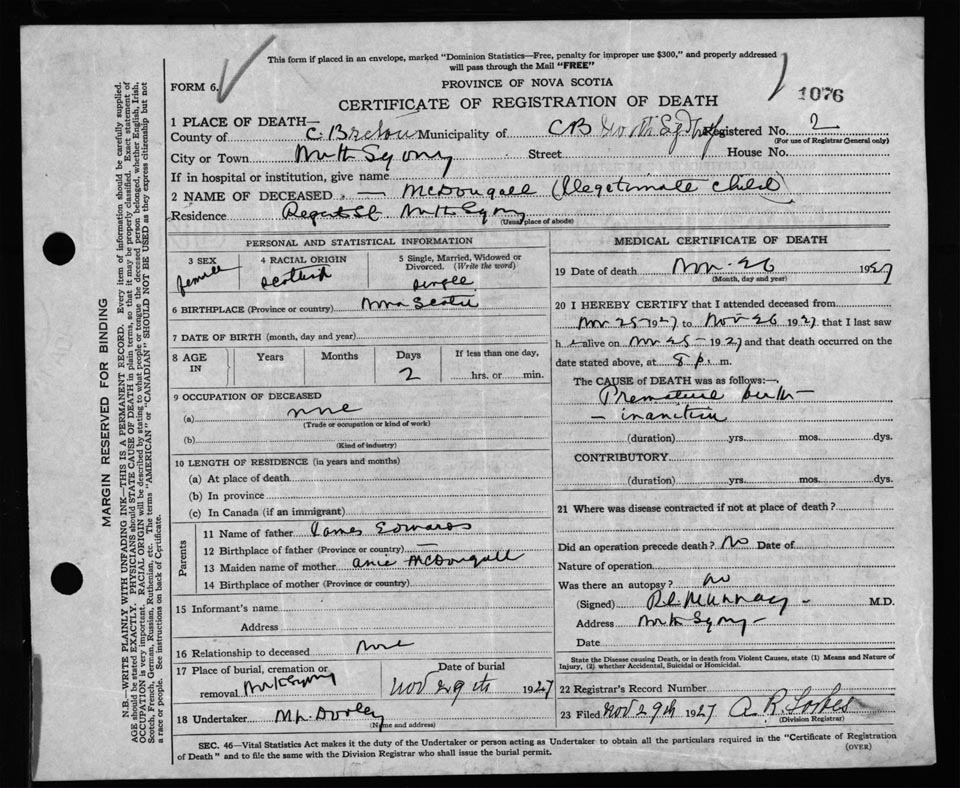 This form if placed in an envelope, marked "Dominion Statistics—Free, penalty for improper use $300," and properly addressed
will pass through the Mail "FREE"
FORM 6.
PROVINCE OF NOVA SCOTIA
1076
CERTIFICATE OF REGISTRATION OF DEATH
1 PLACE OF DEATH—
County of C. Breton Municipality of CB North Sydney Registered No. 2
(For use of Registrar General only)
City or Town North Sydney Street House No.
If in hospital or institution, give name
2 NAME OF DECEASED — McDougall (Illegetimate child)
Residence Regent St North Sydney
(Usual place of abode)
PERSONAL AND STATISTICAL INFORMATION
3 SEX
female
4 RACIAL ORIGIN
scotish
5 Single, Married, Widowed or
Divorced. (Write the word)
single
6 BIRTHPLACE (Province or country) Nova Scotia
7 DATE OF BIRTH (month, day and year)
8 AGE
IN
Years
Months
Days
2
If less than one day,
hrs. or min.
9 OCCUPATION OF DECEASED
(a) none
(Trade or occupation or kind of work)
(b)
(Kind of industry)
10 LENGTH OF RESIDENCE (in years and months)
(a) At place of death
(b) In province
(c) In Canada (if an immigrant)
Parents
11 Name of father James Edwards
12 Birthplace of father (Province or country) —
13 Maiden name of mother Anie McDougall
14 Birthplace of mother (Province or country)
15 Informant's name
Address
16 Relationship to deceased none
17 Place of burial, cremation or
removal North Sydney
Date of burial
Nov 29th 1927
18 Undertaker Mr. Dooley
(Name and address)
MEDICAL CERTIFICATE OF DEATH
19 Date of death Nov. 26 1927
(Month, day and year)
20 I HEREBY CERTIFY that I attended deceased from
Nov 25 - 1927 to Nov 26 1927 that I last saw
h e alive on Nov 25 - 1927 and that death occurred on the
date stated above, at 8 p. m.
The CAUSE of DEATH was as follows:—
Premature birth —
— inanition
(duration) yrs. mos. dys.
CONTRIBUTORY
(duration) yrs. mos. dys.
21 Where was disease contracted if not at place of death?
Did an operation precede death? No Date of
Nature of operation
Was there an autopsy? no
(Signed) Murray - M.D.
Address North Sydney -
Date
State the Disease causing Death, or in death from Violent Causes, state (1) Means and Nature of
Injury, (2) whether Accidental, Suicidal or Homicidal.
22 Registrar's Record Number
23 Filed Nov 29th 1927 A. R. Forbes
(Division Registrar)
SEC. 46—Vital Statistics Act makes it the duty of the Undertaker or person acting as Undertaker to obtain all the particulars required in the "Certificate of Registration
of Death" and to file the same with the Division Registrar who shall issue the burial permit.
(OVER)
MARGIN RESERVED FOR BINDING
N.B.—WRITE PLAINLY WITH UNFADING INK—THIS IS A PERMANENT RECORD. Every item of information should be carefully supplied.
AGE should be stated EXACTLY. PHYSICIANS should STATE CAUSE OF DEATH in plain terms, so that it may be properly classified. Exact statement of
OCCUPATION is very important. RACIAL ORIGIN will be described by stating to what people or tongue the deceased person belonged, whether English, Irish,
Scotch, French, German, Russian, Ruthenian, etc. The terms "AMERICAN" or "CANADIAN" SHOULD NOT BE USED as they express citizenship but not
a race or people. See instructions on back of Certificate.